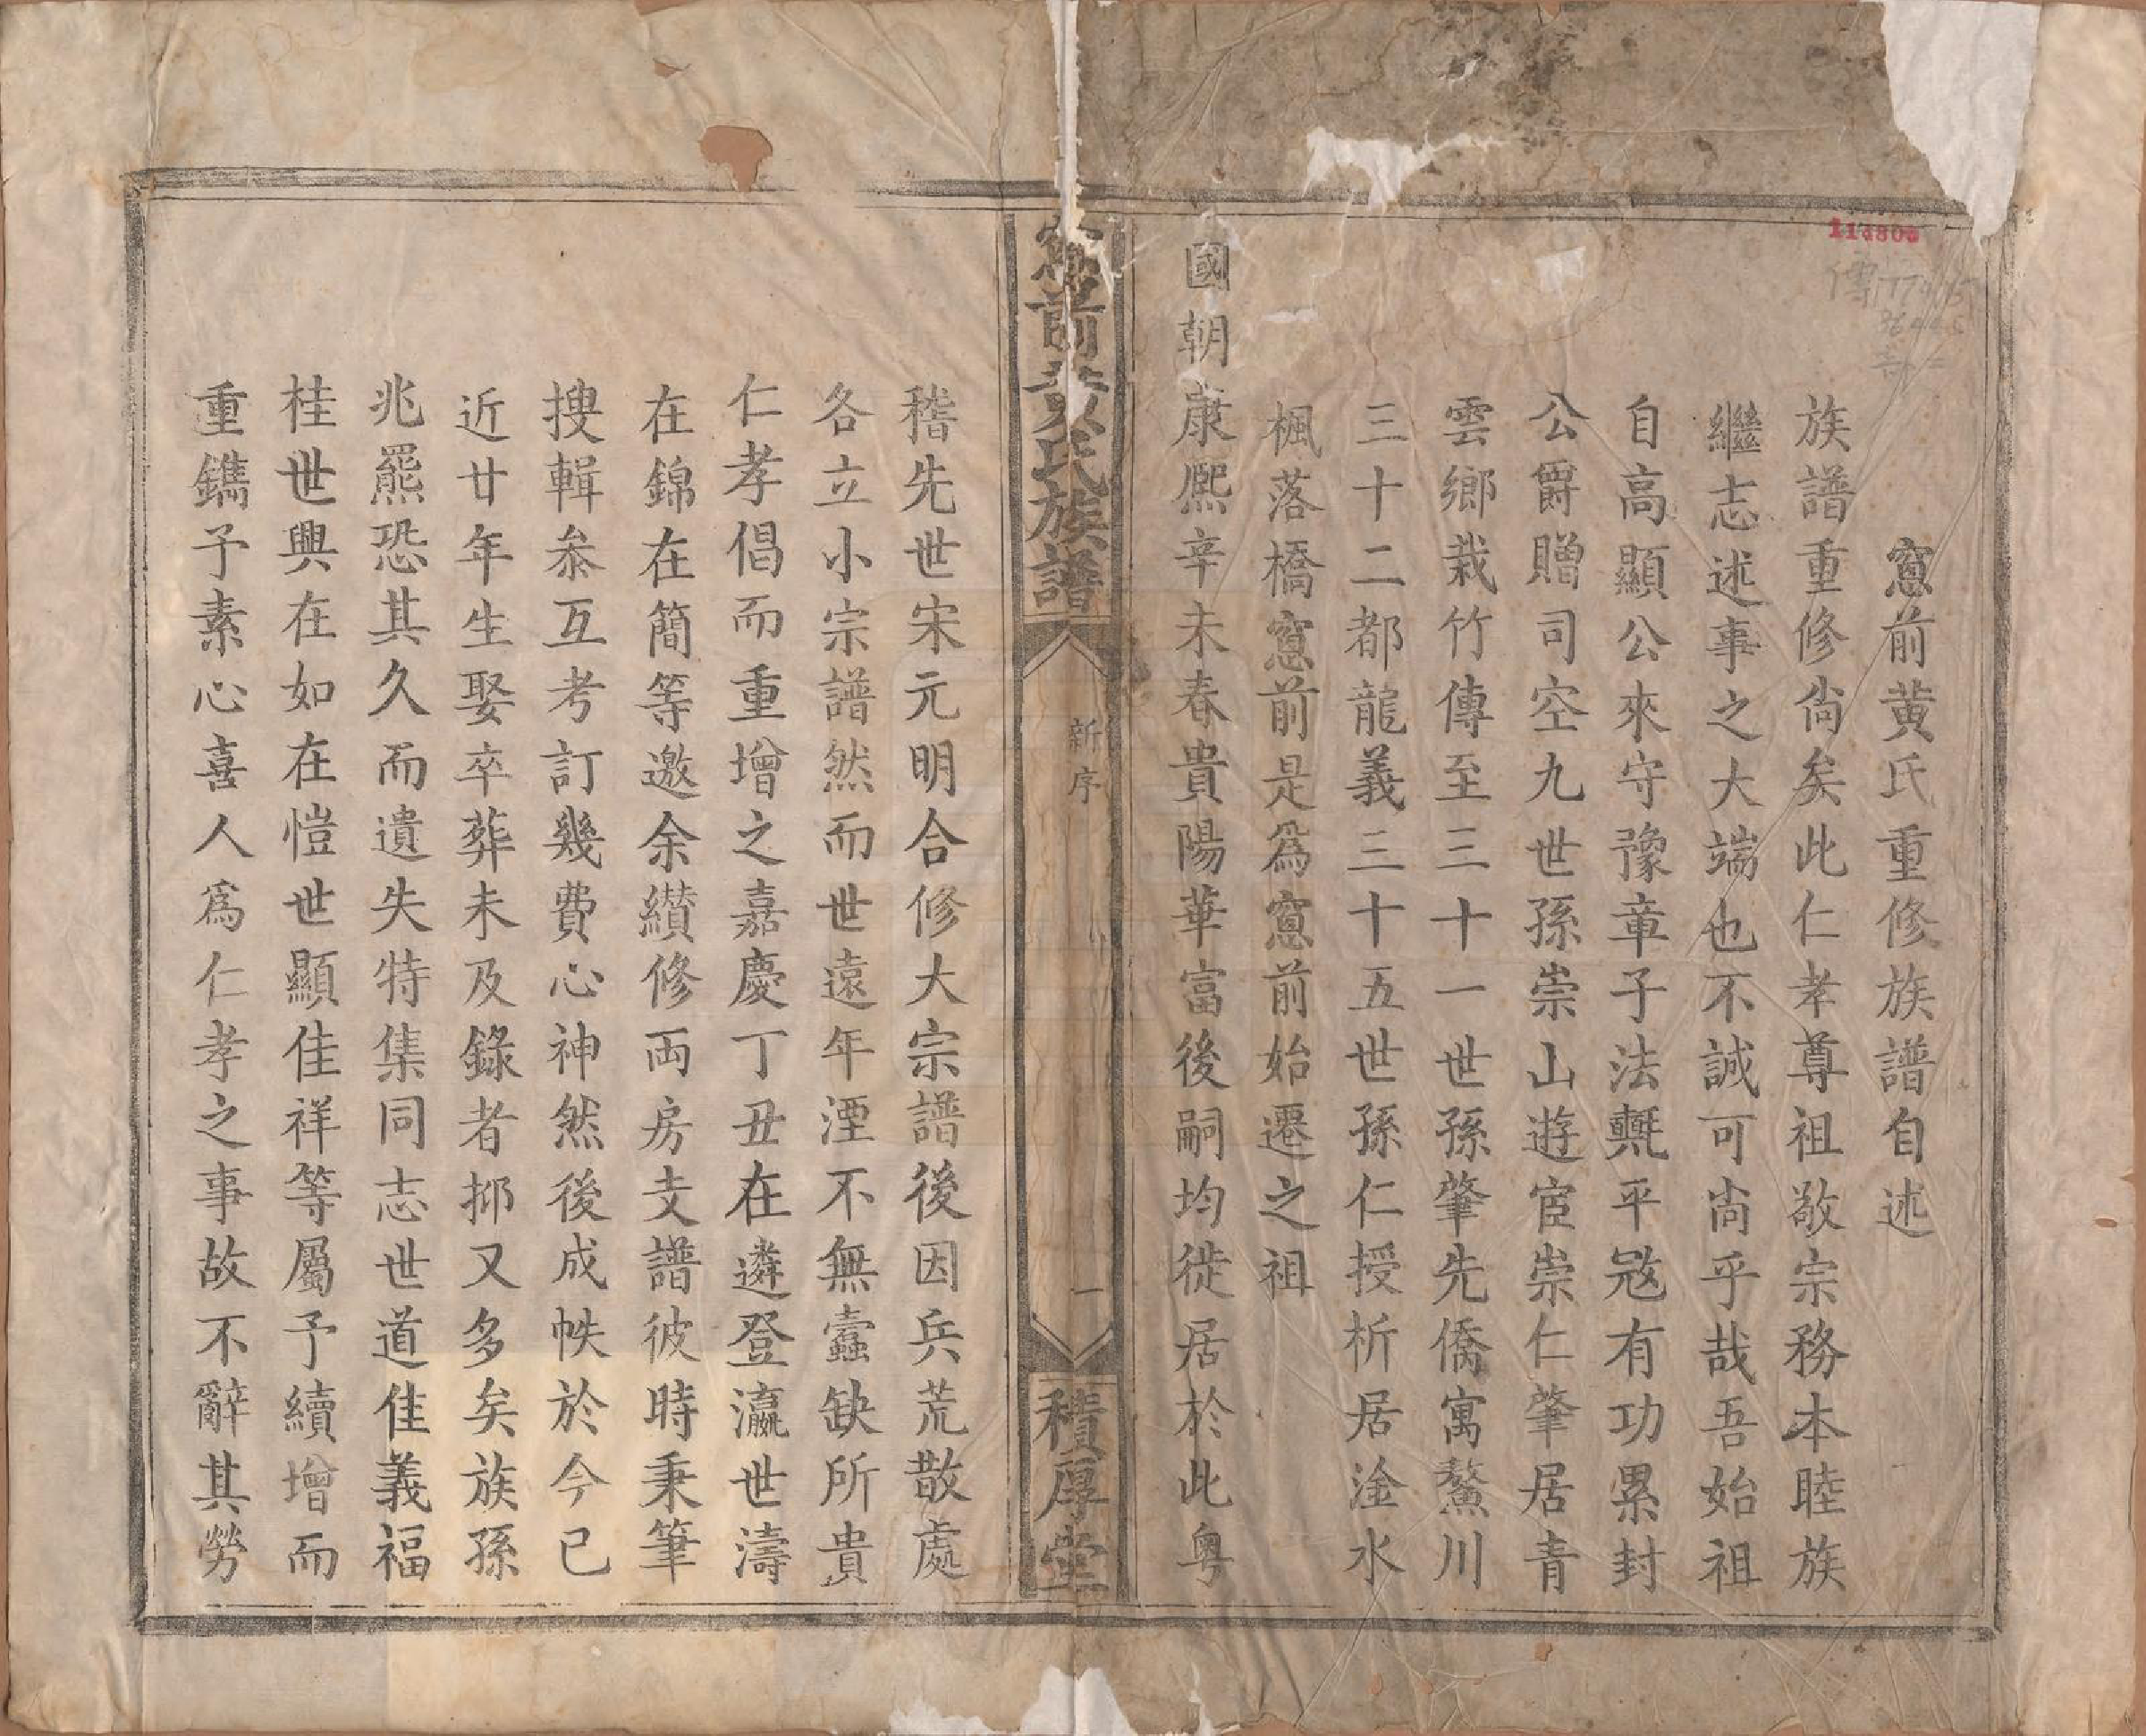 窻前黄氏重修族譜自述
族譜重修尙矣此仁孝尊祖敬宗務本睦族
繼志述事之大端也不誠可尙乎哉吾始祖
自高顯公來守豫章子法䡖平冦有功累封
公爵贈司空九世孫崇山遊宦崇仁肇居青
雲鄉栽竹傳至三十一世孫肇先僑寓鰲川
三十二都龍義三十五世孫仁授析居淦水
楓落橋窻前是爲窻前始遷之祖
國朝康熙辛未春貴陽華富後嗣均徙居於此粤
窻前黄氏族譜
新序
一
積厚堂
稽先世宋元明合修大宗譜後因兵荒散處
各立小宗譜然而世遠年湮不無蠹缺所貴
仁孝倡而重增之嘉慶丁丑在遴登瀛世濤
在錦在簡等邀余纉修両房支譜彼時秉筆
搜輯叅互考訂幾費心神然後成帙於今已
近廿年生娶卒葬未及錄者抑又多矣族孫
兆羆恐其久而遺失特集同志世道佳義福
桂世興在如在愷世顯佳祥等屬予續增而
重鐫予素心喜人爲仁孝之事故不辭其勞